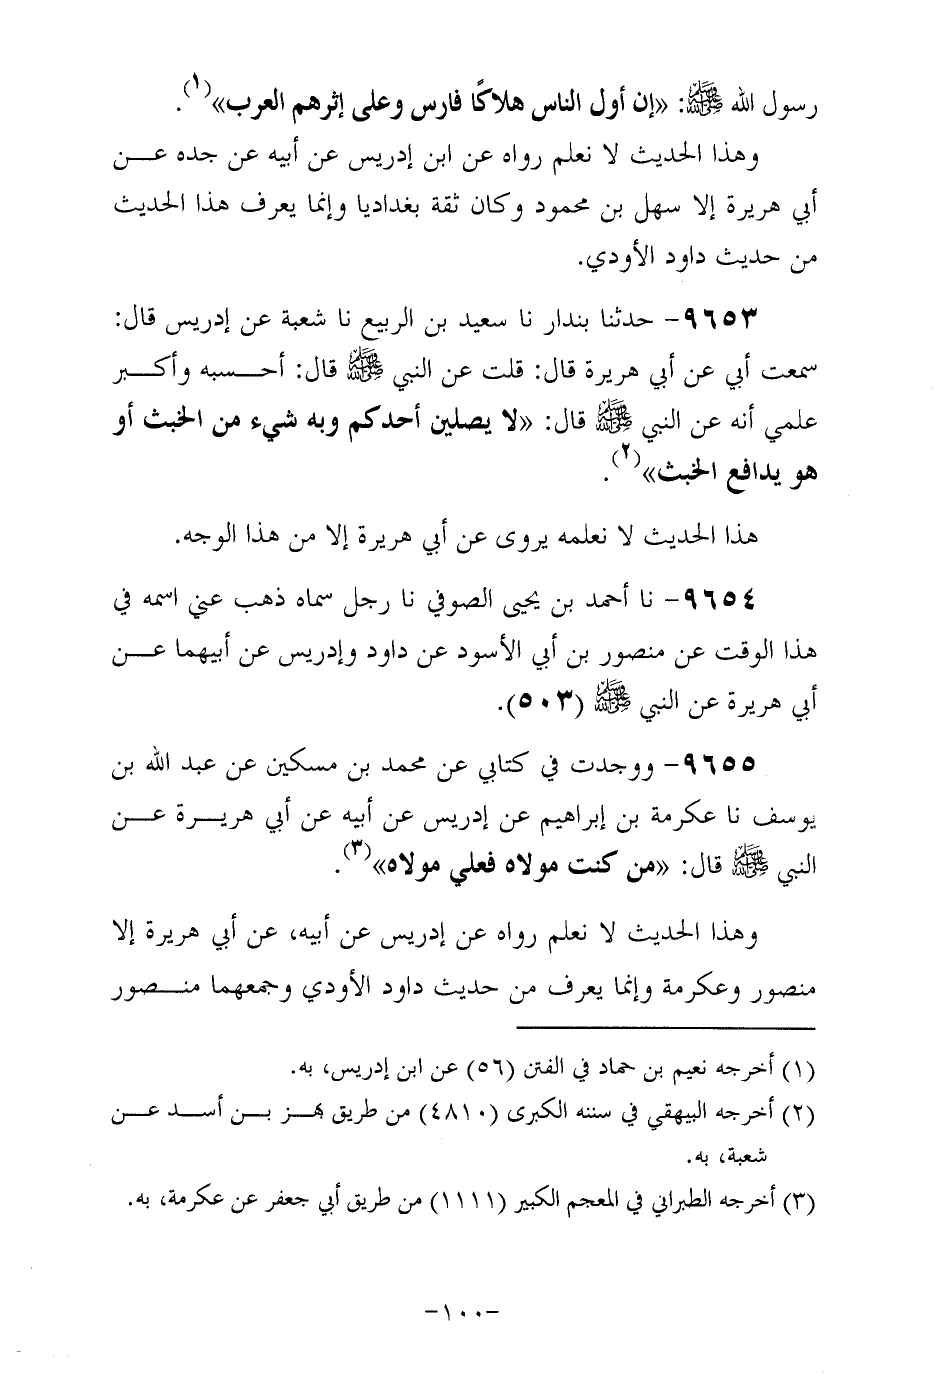 رسول الله ﷺ: «إن أول الناس هلاكًا فارس وعلى إثرهم العرب»(١).
وهذا الحديث لا نعلم رواه عن ابن إدريس عن أبيه عن جده عـــن
أبي هريرة إلا سهل بن محمود وكان ثقة بغداديا وإنما يعرف هذا الحديث
من حديث داود الأودي.
٩٦٥٣- حدثنا بندار نا سعيد بن الربيع نا شعبة عن إدريس قال:
سمعت أبي عن أبي هريرة قال: قلت عن النبي ﷺ قال: أحـــسبه وأكـــبر
علمي أنه عن النبي ﷺ قال: «لا يصلين أحدكم وبه شيء من الخبث أو
هو يدافع الخبث»(٢).
هذا الحديث لا نعلمه يروى عن أبي هريرة إلا من هذا الوجه.
٩٦٥٤- نا أحمد بن يحيى الصوفي نا رجل سماه ذهب عني اسمه في
هذا الوقت عن منصور بن أبي الأسود عن داود وإدريس عن أبيهما عـــن
أبي هريرة عن النبي ﷺ (٥٠٣).
٩٦٥٥- ووجدت في كتابي عن محمد بن مسكين عن عبد الله بن
يوسف نا عكرمة بن إبراهيم عن إدريس عن أبيه عن أبي هريـــرة عـــن
النبي ﷺ قال: «من كنت مولاه فعلي مولاه»(٣).
وهذا الحديث لا نعلم رواه عن إدريس عن أبيه، عن أبي هريرة إلا
منصور وعكرمة وإنما يعرف من حديث داود الأودي وجمعهما منـــصور
(١) أخرجه نعيم بن حماد في الفتن (٥٦) عن ابن إدريس، به.
(٢) أخرجه البيهقي في سننه الكبرى (٤٨١٠) من طريق بهـــز بـــن أســـد عـــن
شعبة، به.
(٣) أخرجه الطبراني في المعجم الكبير (١١١١) من طريق أبي جعفر عن عكرمة، به.
-١٠٠-